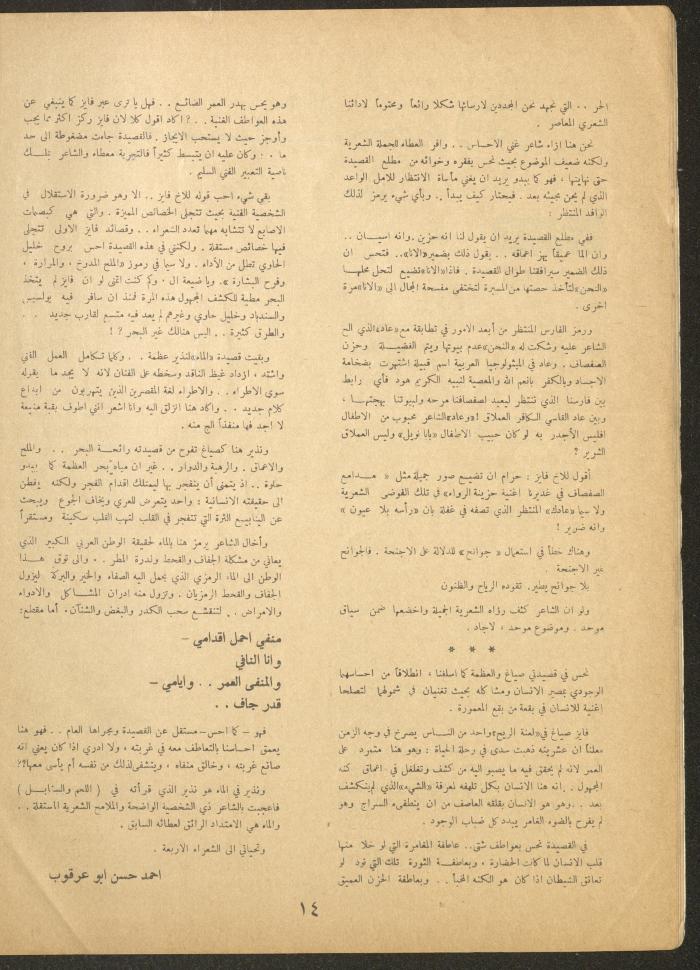 الحر . . التي نجهد نحن المجددين لارسائها شكلا رائعاً ومحتوماً لادائنا
الشعري المعاصر .
نحن هنا ازاء شاعر غني الاحساس . . وافر العطاء للجملة الشعرية
ولكنه ضعيف الموضوع بحيث نحس بفقره وخوائه من مطلع القصيدة
حتى نهايتها ، فهو كما يبدو يريد ان يغني مأساة الانتظار للامل الواعد
الذي لم يحن مجيئه بعد . فيحتار كيف يبدأ . . وبأي شيء يرمز لذلك
الوافد المنتظر :
ففي مطلع القصيدة يريد ان يقول لنا انه حزين . وانه اسيان . .
وان الما عميقاً يهز اعماقه . . يقول ذلك بضمير «الانا» . . فتحس ان
ذلك الضمير سيرافقنا طوال القصيدة . فاذا «الانا» تضيع لتحل محلها
«النحن» لتأخذ حصتها من المسيرة لتختفي مفسحة المجال الى «الانا» مرة
اخرى .
ورمز الفارس المنتظر من أبعد الامور في تطابقة مع «عاد» الذي الح
الشاعر عليه وشكت له «النحن» عدم بيوتها ويتم الفضيلة وحزن
الصفصاف . وعاد في الميثولوجيا العربية اسم قبيلة اشتهرت بضخامة
الاجساد وبالكفر بانعم الله والمعصية لنبيه الكريم هود فأي رابط
بين فارسنا الذي ننتظر ليعيد لصفصافنا مرحه ولبيوتنا بهجتها ،
وبين عاد القاسي الكافر العملاق ! «وعاد» الشاعر محبوب من الاطفال
افليس الأجدر به لو كان حبيب الاطفال «بابا نويل» وليس العملاق
الشرير ؟
أقول للاخ فايز : حرام ان تضيع صور جميلة مثل « مدامع
الصفصاف في غديرنا اغنية حزينة الرواء» في تلك الفوضى الشعرية
ولا سيما «عادك» المنتظر الذي تصفه في غفلة بان «رأسه بلا عيون »
وانه ضرير !
وهناك خطأ في استعمال « جوانح» للدلالة على الاجنحة . فالجوانح
غير الاجنحة .
بلا جوانح يطير. تقوده الرياح والظنون
ولو ان الشاعر كثف رؤاه الشعرية الجميلة واخضعها ضمن سياق
موحد . وموضوع موحد ، لاجاد .
* * *
نحس في قصيدتي صياغ والعظمة كما اسلفنا ، انطلاقاً من احساسهما
الوجودي بمصير الانسان ومشاكله بحيث تغنيان في شمولهما لتصلحا
اغنية للانسان في بقعة من بقع المعمورة .
فايز صياغ في «لعنة الريح» واحد من الناس يصرخ في وجه الزمن
معلناً ان عشرينه ذهبت سدى في رحلة الحياة : وهو هنا متمرد على
العمر لانه لم يحقق فيه ما يصبو اليه من كشف وتغلغل في اعماق كنه
المجهول . . انه هنا الانسان بكل تلهفه لمعرفة «الشيء» الذي لم ينكشف
بعد . . وهو هو الانسان بقلقه العاصف من ان ينطفىء السراج وهو
لم يفرح بالضوء الغامر يبدد كل ضباب الوجود .
في القصيدة نحس بعواطف شتى . . عاطفة المغامرة التي لو خلا منها
قلب الانسان لما كانت الحضارة ، وبعاطفة الثورة تلك التي تود لو
تعانق الشيطان اذا كان هو الكنه المخبأ . . وبعاطفة الحزن العميق
وهو يحس بهدر العمر الضائع . . فهل يا ترى عبر فايز كما ينبغي عن
هذه العواطف الفنية . . ? اكاد اقول كلا لان فايز ركز اكثر مما يجب
وأوجز حيث لا يستحب الايجاز . فالقصيدة جاءت مضغوطة الى حد
ما . . وكان عليه ان يتبسط كثيراً فالتجربة معطاء والشاعر يملك
ناصية التعبير الفني السليم .
بقي شيء احب قوله للاخ فايز . . الا وهو ضرورة الاستقلال في
الشخصية الفنية بحيث تتجلى الخصائص المميزة . والتي هي كبصمات
الاصابع لا تتشابه مهما تعدد الشعراء . . وقصائد فايز الاولى تتجلى
فيها خصائص مستقلة . ولكنني في هذه القصيدة احس بروح خليل
الحاوي تطل من الأداء . ولا سيما في رموز «الملح المدوخ ، والمرارة ،
وفوح البشارة » . ويا ضيعة ال . وكم كنت اتمنى لو ان فايز لم يتخذ
البحر مطية للكشف المجهول هذه المرة فمنذ ان سافر فيه يوليسيس
والسندباد وخليل حاوي وغيرهم لم يعد فيه متسع لقارب جديد . .
والطرق كثيرة . . اليس هنالك غير البحر ? !
وبقيت قصيدة «الماء» لنذير عظمة . . وكلما تكامل العمل الفني
واشتد ، ازداد غيظ الناقد وسخطه على الفنان لانه لا يجد ما يقوله
سوى الاطراء . . والاطراء لغة المقصرين الذين يتهربون من ابداع
كلام جديد . . واكاد هنا انزلق اليه وانا اشعر انني اطوف بقبة منيعة
لا اجد فيها منفذاً الج منه .
ونذير هنا كصياغ تفوح من قصيدته رائحة البحر . . والملح
والاعماق . والرهبة والدوار . . غير ان مياه بحر العظمة كما يبدو
حلوة . . اذ يتمنى أن ينفجر بها ليمتلك اقدام الفجر ولكنه يفطن
الى حقيقته الانسانية : واحد يتعرض للعري ويخاف الجوع ويبحث
عن الينابيع الثرة التي تتفجر في القلب لتهب القلب سكينة ومستقراً
وأخال الشاعر يرمز هنا بالماء لحقيقة الوطن العربي الكبير الذي
يعاني من مشكلة الجفاف والقحط وندرة المطر . . والى توق هذا
الوطن الى الماء الرمزي الذي يحمل اليه الصفاء والخير والبركة ليزول
الجفاف والقحط الرمزيان . وتزول منه ادران المشاكل والادواء
والامراض . . لتنقشع سحب الكدر والبغض والشنآن. أما مقطع:
منفي احمل اقدامي –
وانا النافي
والمنفى العمر . . وايامي –
قدر جاف . .
فهو – كما احس – مستقل عن القصيدة ومجراها العام . . فهو هنا
يعمق احساسنا بالتعاطف معه في غربته ، ولا ادري اذا كان يعني انه
صانع غربته ، وخالق منفاه ، ويتشفى لذلك من نفسه أم يأسى معها؟؟
ونذير في الماء هو نذير الذي قرأته في ( اللحم والسنابل )
فاعجبت بالشاعر ذي الشخصية الواضحة والملامح الشعرية المستقلة . .
والماء هي الامتداد الرائق لعطائه السابق .
وتحياتي الى الشعراء الاربعة .
احمد حسن ابو عرقوب
١٤